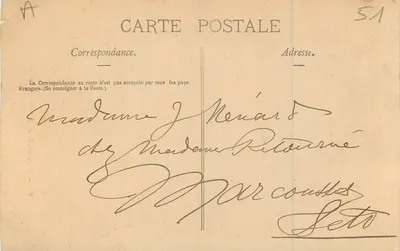 A
51
CARTE POSTALE
Correspondance.
Adresse.
La Correspondance au recto n'est pas acceptée par tous les pays
étrangers. (Se renseigner à la Poste.)
Madame J Ménard
chez Madame
Marcoussis